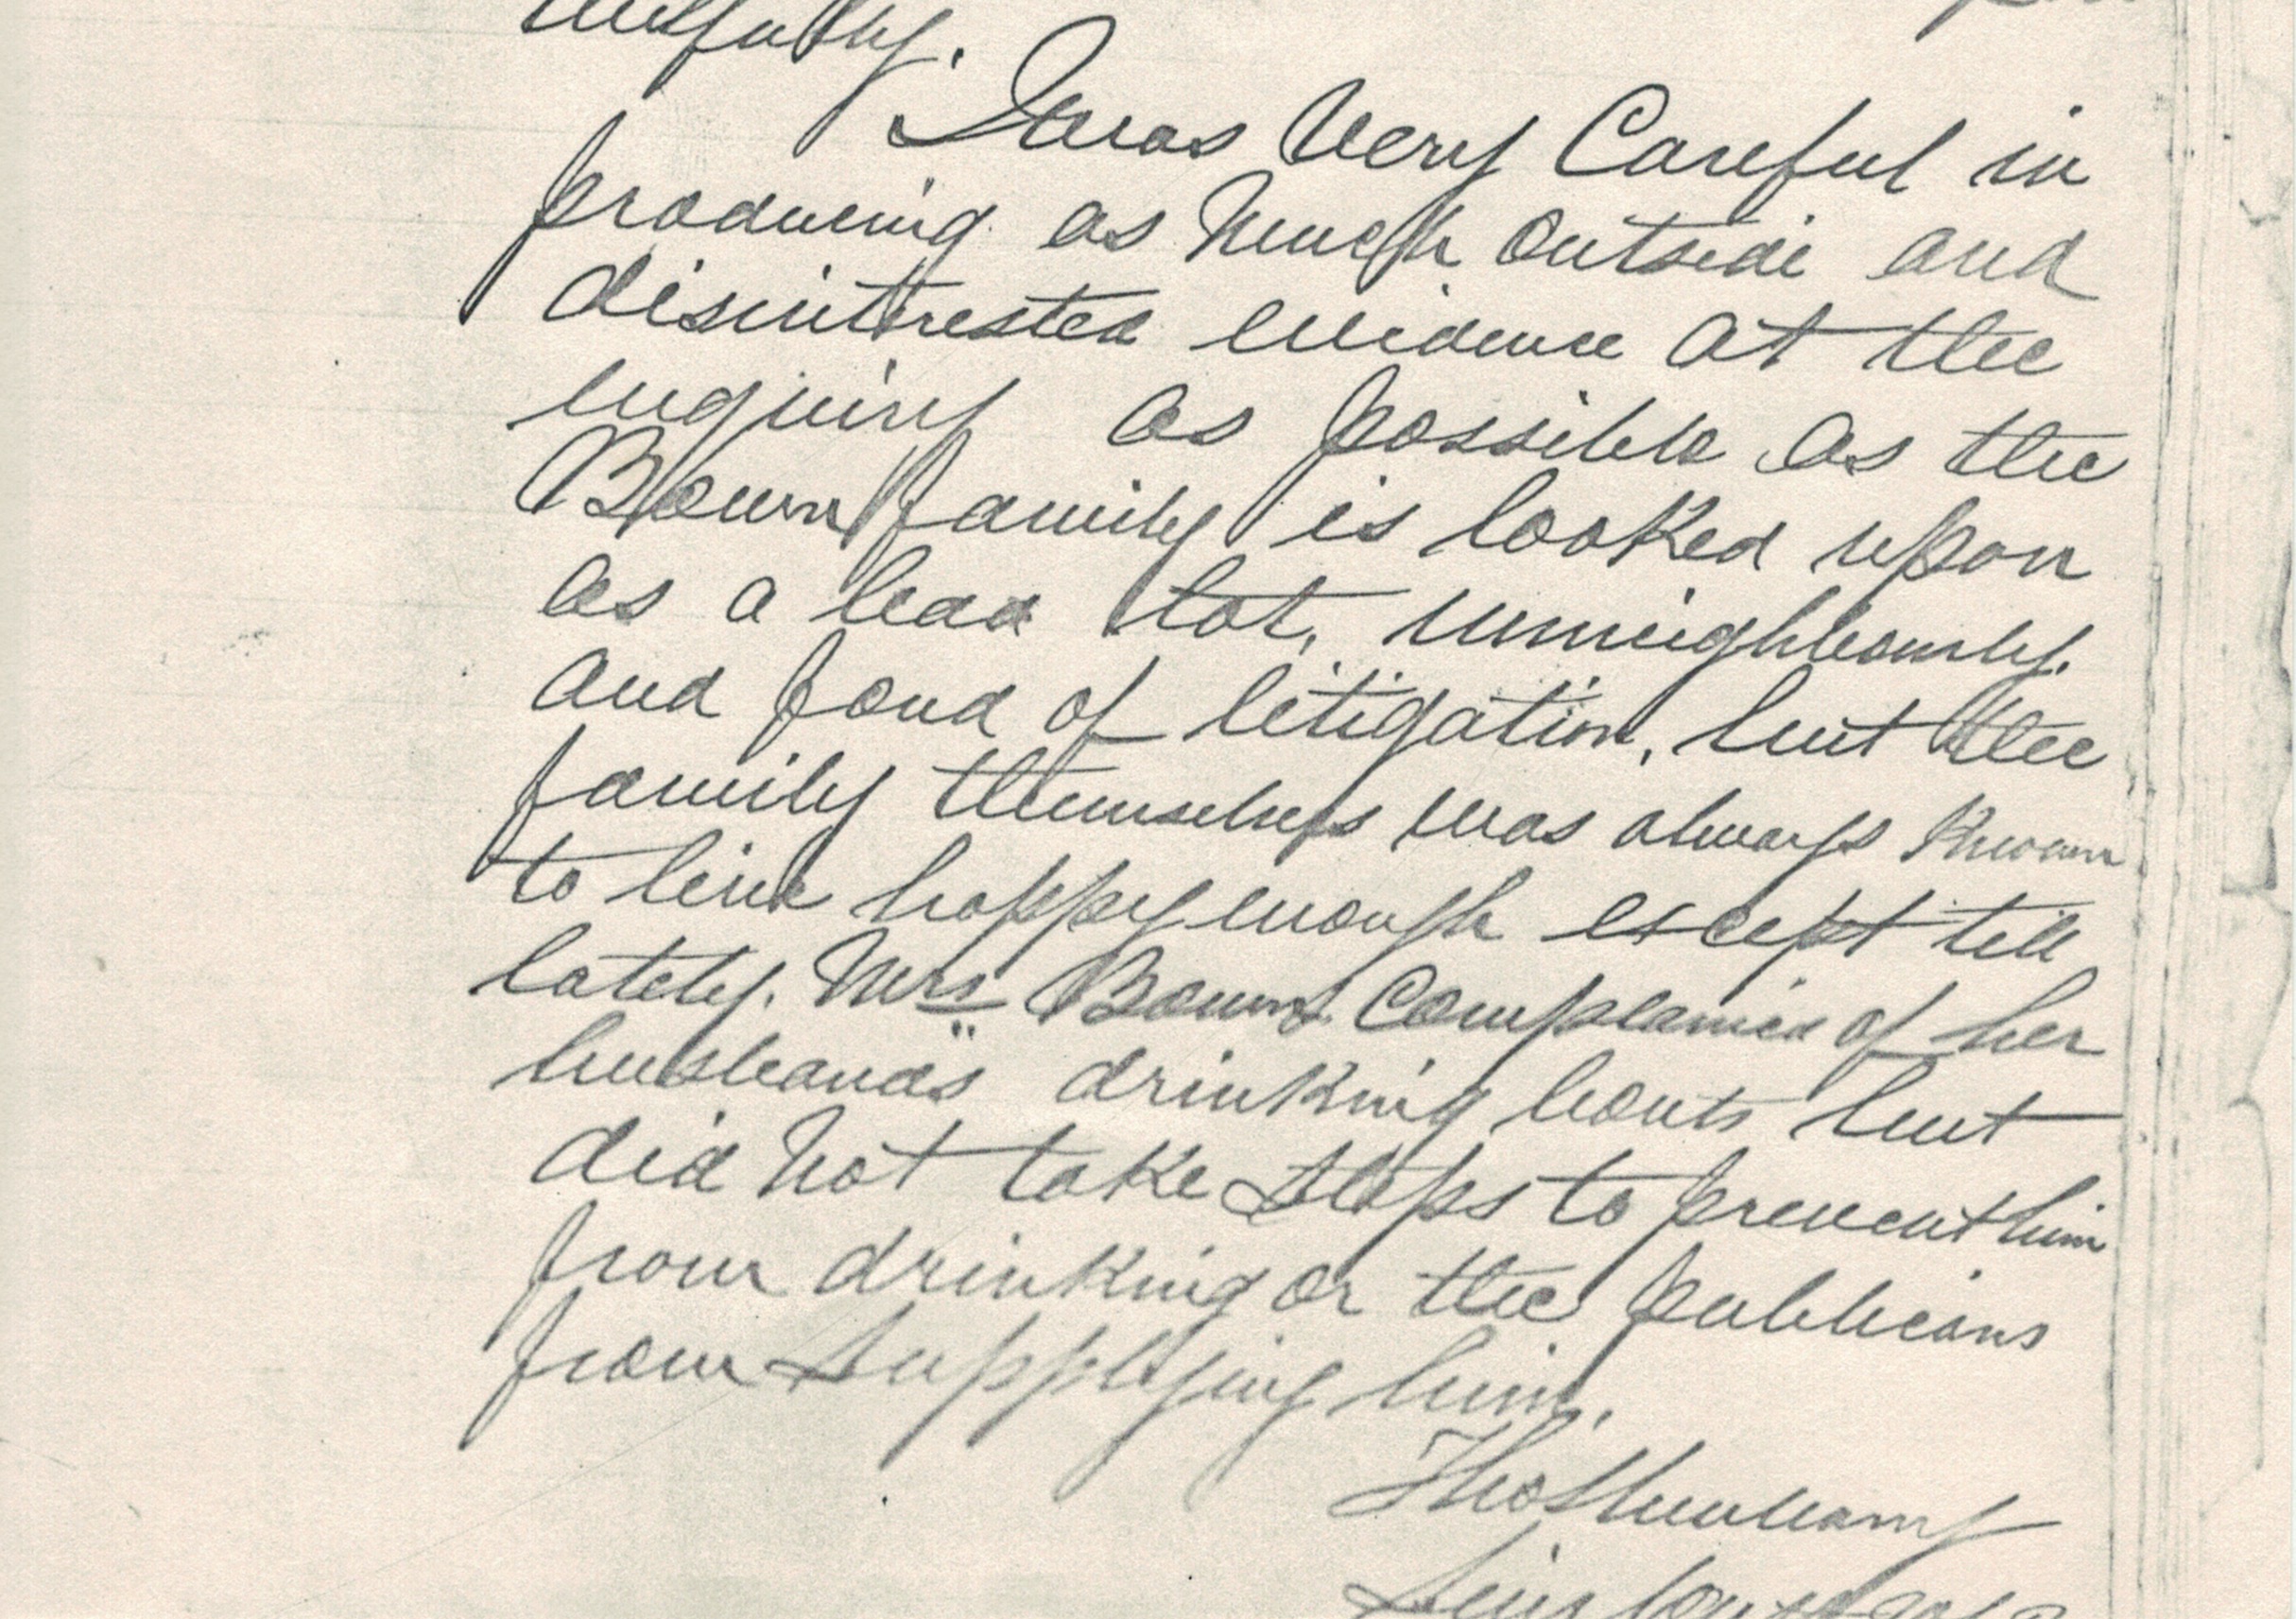 wilfully.
I was Very Careful in
producing as Much Outside and
disinterested evidence at the
enquiry as possible as the
Bown family is looked upon
as a bad lot, unneighbourly.
and fond of litigation, but the
family themselves was always Known
to live happy enough except till
lately. Mrs Bown Complained of her
husbands drinking bouts but
did Not take Steps to prevent him
from drinking or the publicans
from Supplying him.
Thos